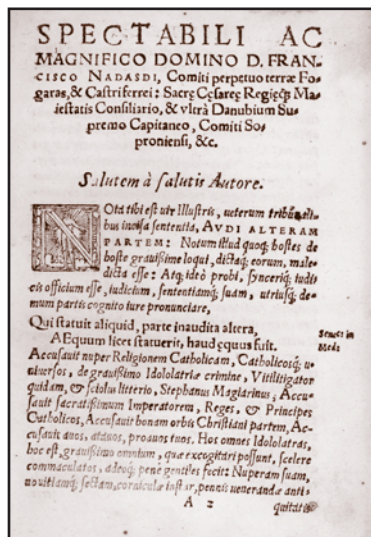 SPECTABILI AC
MAGNIFICO DOMINO D. FRAN-
CISCO NADASDI, Comiti perpetuo terræ Fo-
garas, & Castri ferrei: Sacrę Cęsareę Regięq́; Ma-
iestatis Consiliario, & vltrà Danubium Su-
premo Capitaneo, Comiti So-
proniensi, &c.
Salutem à salutis Autore.
NOta tibi est vir Illustris, ueterum tribunalibus
incisa sententia, AVDI ALTERAM
PARTEM: Notum illud quoq; hostes de
hoste grauißime loqui, dictaq; eorum, male-
dicta esse: Atq; ideò probi, synceriq; iudi-
cis officium esse, iudicium, sententiamq; suam, utriusq; de-
mum partis cognito iure pronunciare,
Qui statuit aliquid, parte inaudita altera,
AEquum licet statuerit, haud ęquus fuit.
Seneca in
Med:
Accusauit nuper Religionem Catholicam, Catholicosq; u-
niuersos, de grauißimo Idololatriæ crimine, Vitilitigator
quidam, & sciolus litterio, Stephanus Magiarinus; Accu-
sauit sacratißimum Imperatorem, Reges, & Principes
Catholicos, Accusauit bonam orbis Christiani partem, Ac-
cusauit auos, atauos, proauos tuos. Hos omnes Idololatras,
hoc est, grauißimo omnium, quæ excogitari possunt, scelere
commaculatos, adeoq; penè gentiles fecit: Nuperam suam,
nouitiamq; sectam, corniculæ instar, pennis uenerandæ anti-
A 2
quitatis